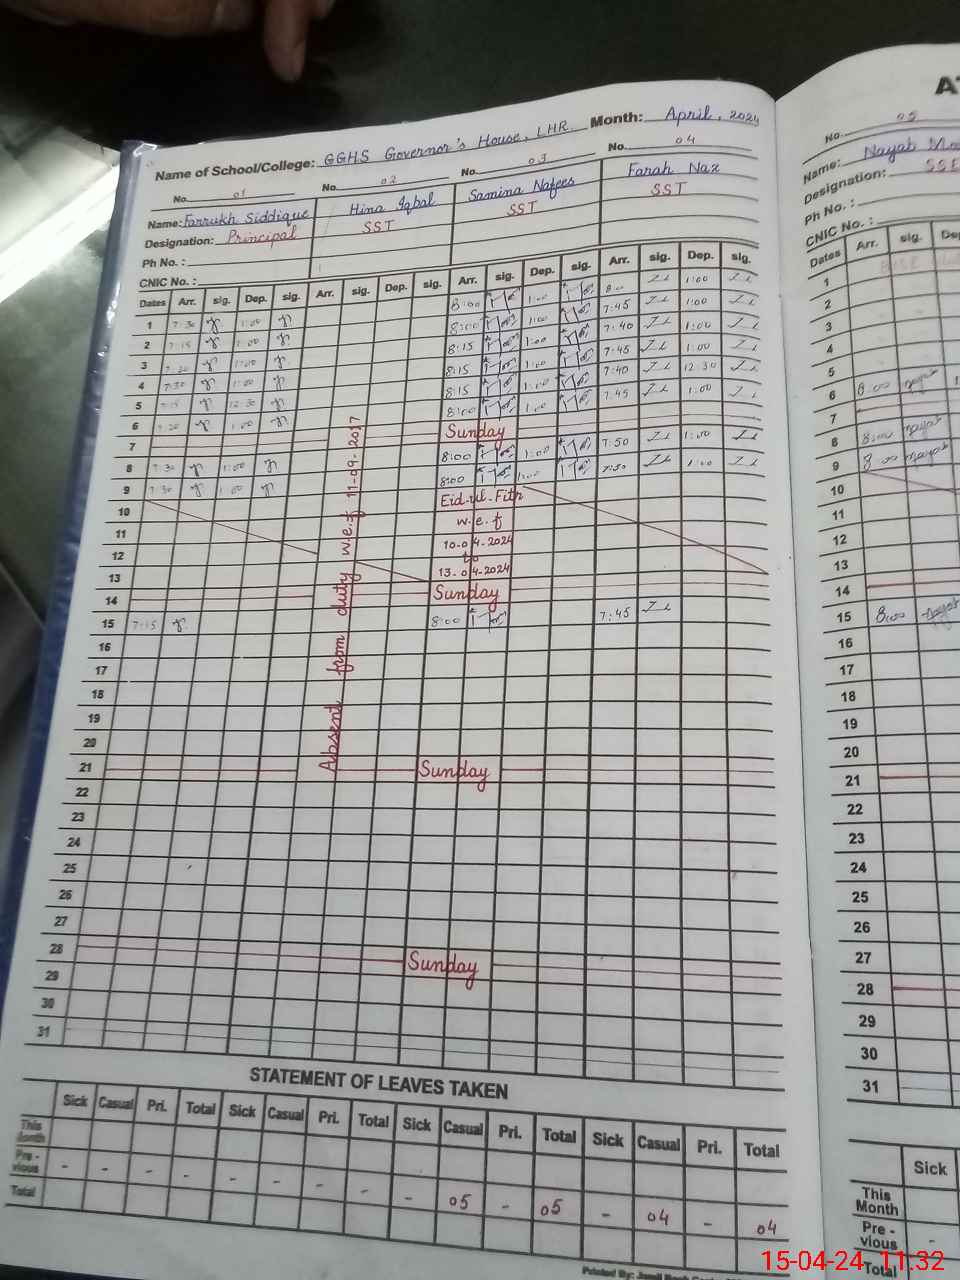 Name of School/College: GGHS Governor's House, LHR Month: April, 2024
No. 01 No. 02 No. 03 No. 04
Name: Farrukh Siddique Hina Iqbal Samina Nafees Farah Naz
Designation: Principal SST SST SST
Ph No. :
CNIC No. :
Dates Arr. sig. Dep. sig. Arr. sig. Dep. sig. Arr. sig. Dep. sig. Arr. sig. Dep. sig.
1 7:30 1:00 8:00 1:00 8:00 1:00
2 7:15 1:00 8:00 1:00 7:45 1:00
3 7:20 1:00 8:15 1:00 7:40 1:00
4 7:30 1:00 8:15 1:00 7:45 1:00
5 7:15 12:30 8:15 1:00 7:40 12 30
6 7:20 1:00 8:00 1:00 7:45 1:00
7 Sunday
8 7:30 1:00 8:00 1:00 7:50 1:00
9 7:30 1:00 8:00 1:00 7:50 1:00
10 Eid-ul-Fitr
11 w.e.f
12 10-04-2024
to
13 13-04-2024
14 Sunday
15 7:15 8:00 7:45
16
17
18
19
20
21 Sunday
22
23
24
25
26
27
28 Sunday
29
30
31
Absent from duty w.e.f 11-09-2017
STATEMENT OF LEAVES TAKEN
Sick Casual Pri. Total Sick Casual Pri. Total Sick Casual Pri. Total Sick Casual Pri. Total
This Month
Pre - vious - - - - - - - - - 05 - 05 - 04 - 04
Total
Printed By:
No. 05
Name: Nayab
Designation: SSE
Ph No. :
CNIC No. :
Dates Arr. sig.
1
2
3
4
5
6 8:00
7
8 8:00
9 8:00
10
11
12
13
14
15 8:00
16
17
18
19
20
21
22
23
24
25
26
27
28
29
30
31
Sick
This Month
Pre - vious -
Total
15-04-24 11:32